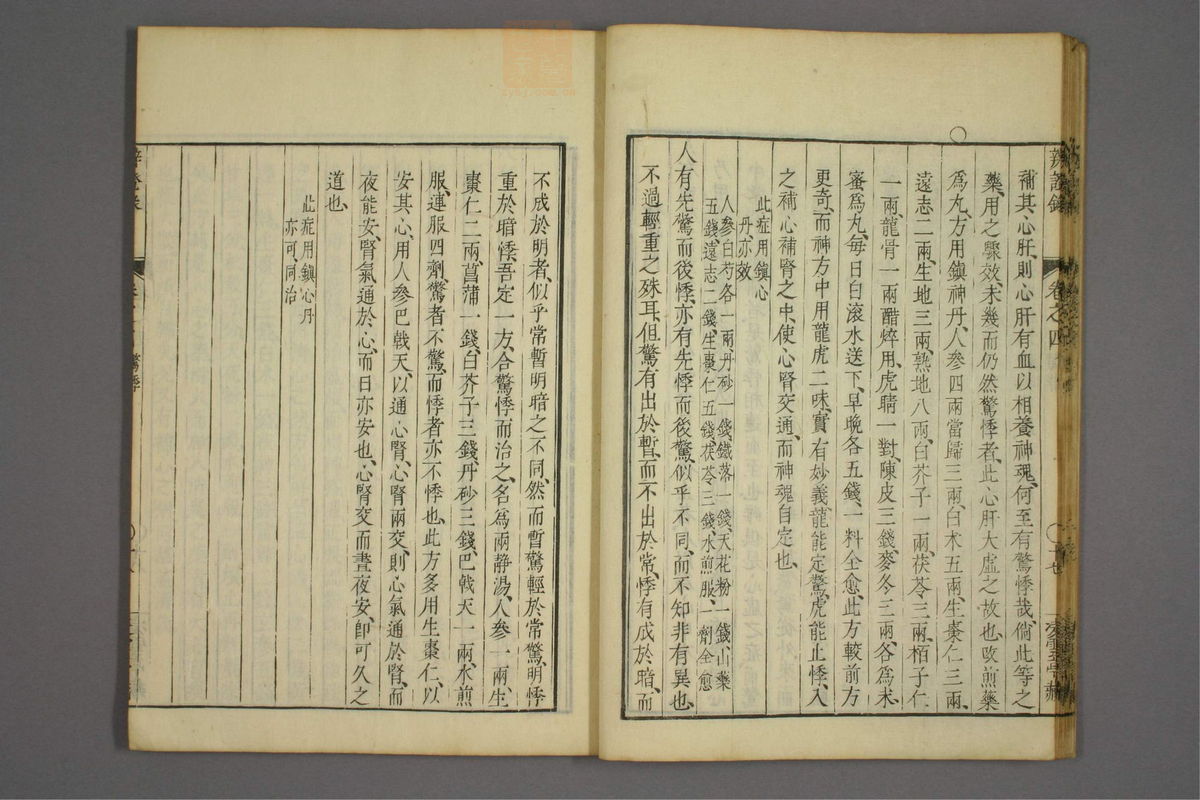 補其心肝、則心肝有血以相養、神魂何至有驚悸哉、倘此等之
藥、用之驟效、未幾而仍然驚悸者、此心肝大虛之故也、改煎藥
爲丸、方用鎮神丹、人參四兩當歸三兩、白朮五兩、生棗仁三兩、
遠志二兩、生地三兩、熟地八兩、白芥子一兩、茯苓三兩、栢子仁
一兩、龍骨一兩醋焠用、虎睛一對、陳皮三錢、麥冬三兩、各爲末、
蜜爲丸、每日白滾水送下、早晚各五錢、一料全愈、此方較前方
更奇、而神方中用龍虎二味、實有妙義、龍能定驚、虎能止悸、入
之補心補腎之中、使心腎交通、而神魂自定也、
此症用鎮心
丹、亦效
人參白芍各一兩、丹砂一錢、鐵落一錢、天花粉一錢、山藥
五錢、遠志二錢、生棗仁五錢、茯苓三錢、水煎服、一劑全愈
人有先驚而後悸、亦有先悸而後驚、似乎不同、而不知非有異也、
不過輕重之殊耳、但驚有出於暫、而不出於常、悸有成於暗、而
辨證錄
卷之四
不成於明者、似乎常暫明暗之不同、然而暫驚輕於常驚、明悸
重於暗悸、吾定一方、合驚悸而治之、名爲兩靜湯、人參一兩、生
棗仁二兩、菖蒲一錢、白芥子三錢、丹砂三錢、巴戟天一兩、水煎
服、連服四劑、驚者不驚、而悸者亦不悸也、此方多用生棗仁、以
安其心、用人參巴戟天、以通心腎、心腎兩交、則心氣通於腎、而
夜能安、腎氣通於心、而日亦安也、心腎交而晝夜安、卽可久之
道也、
此症用鎮心丹
亦可、同治
驚悸